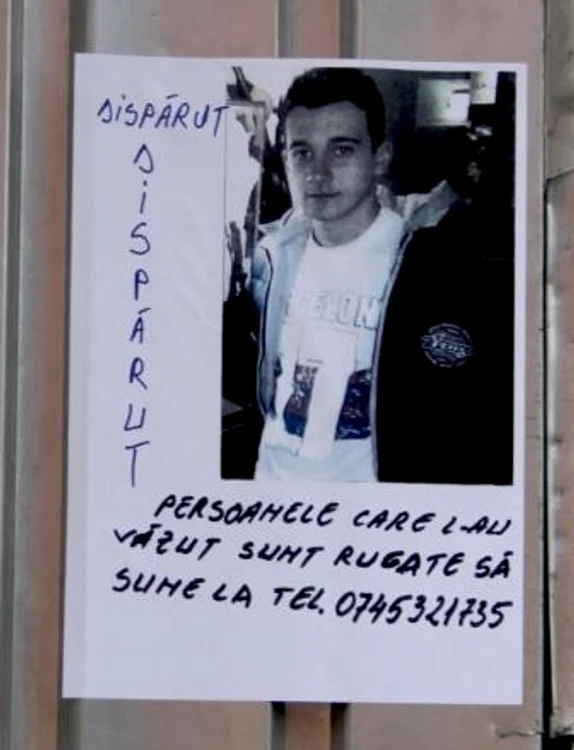 DISPĂRUT
DISPĂRUT
PERSOANELE CARE L-AU
VĂZUT SUNT RUGATE SĂ
SUNE LA TEL. 0745321735